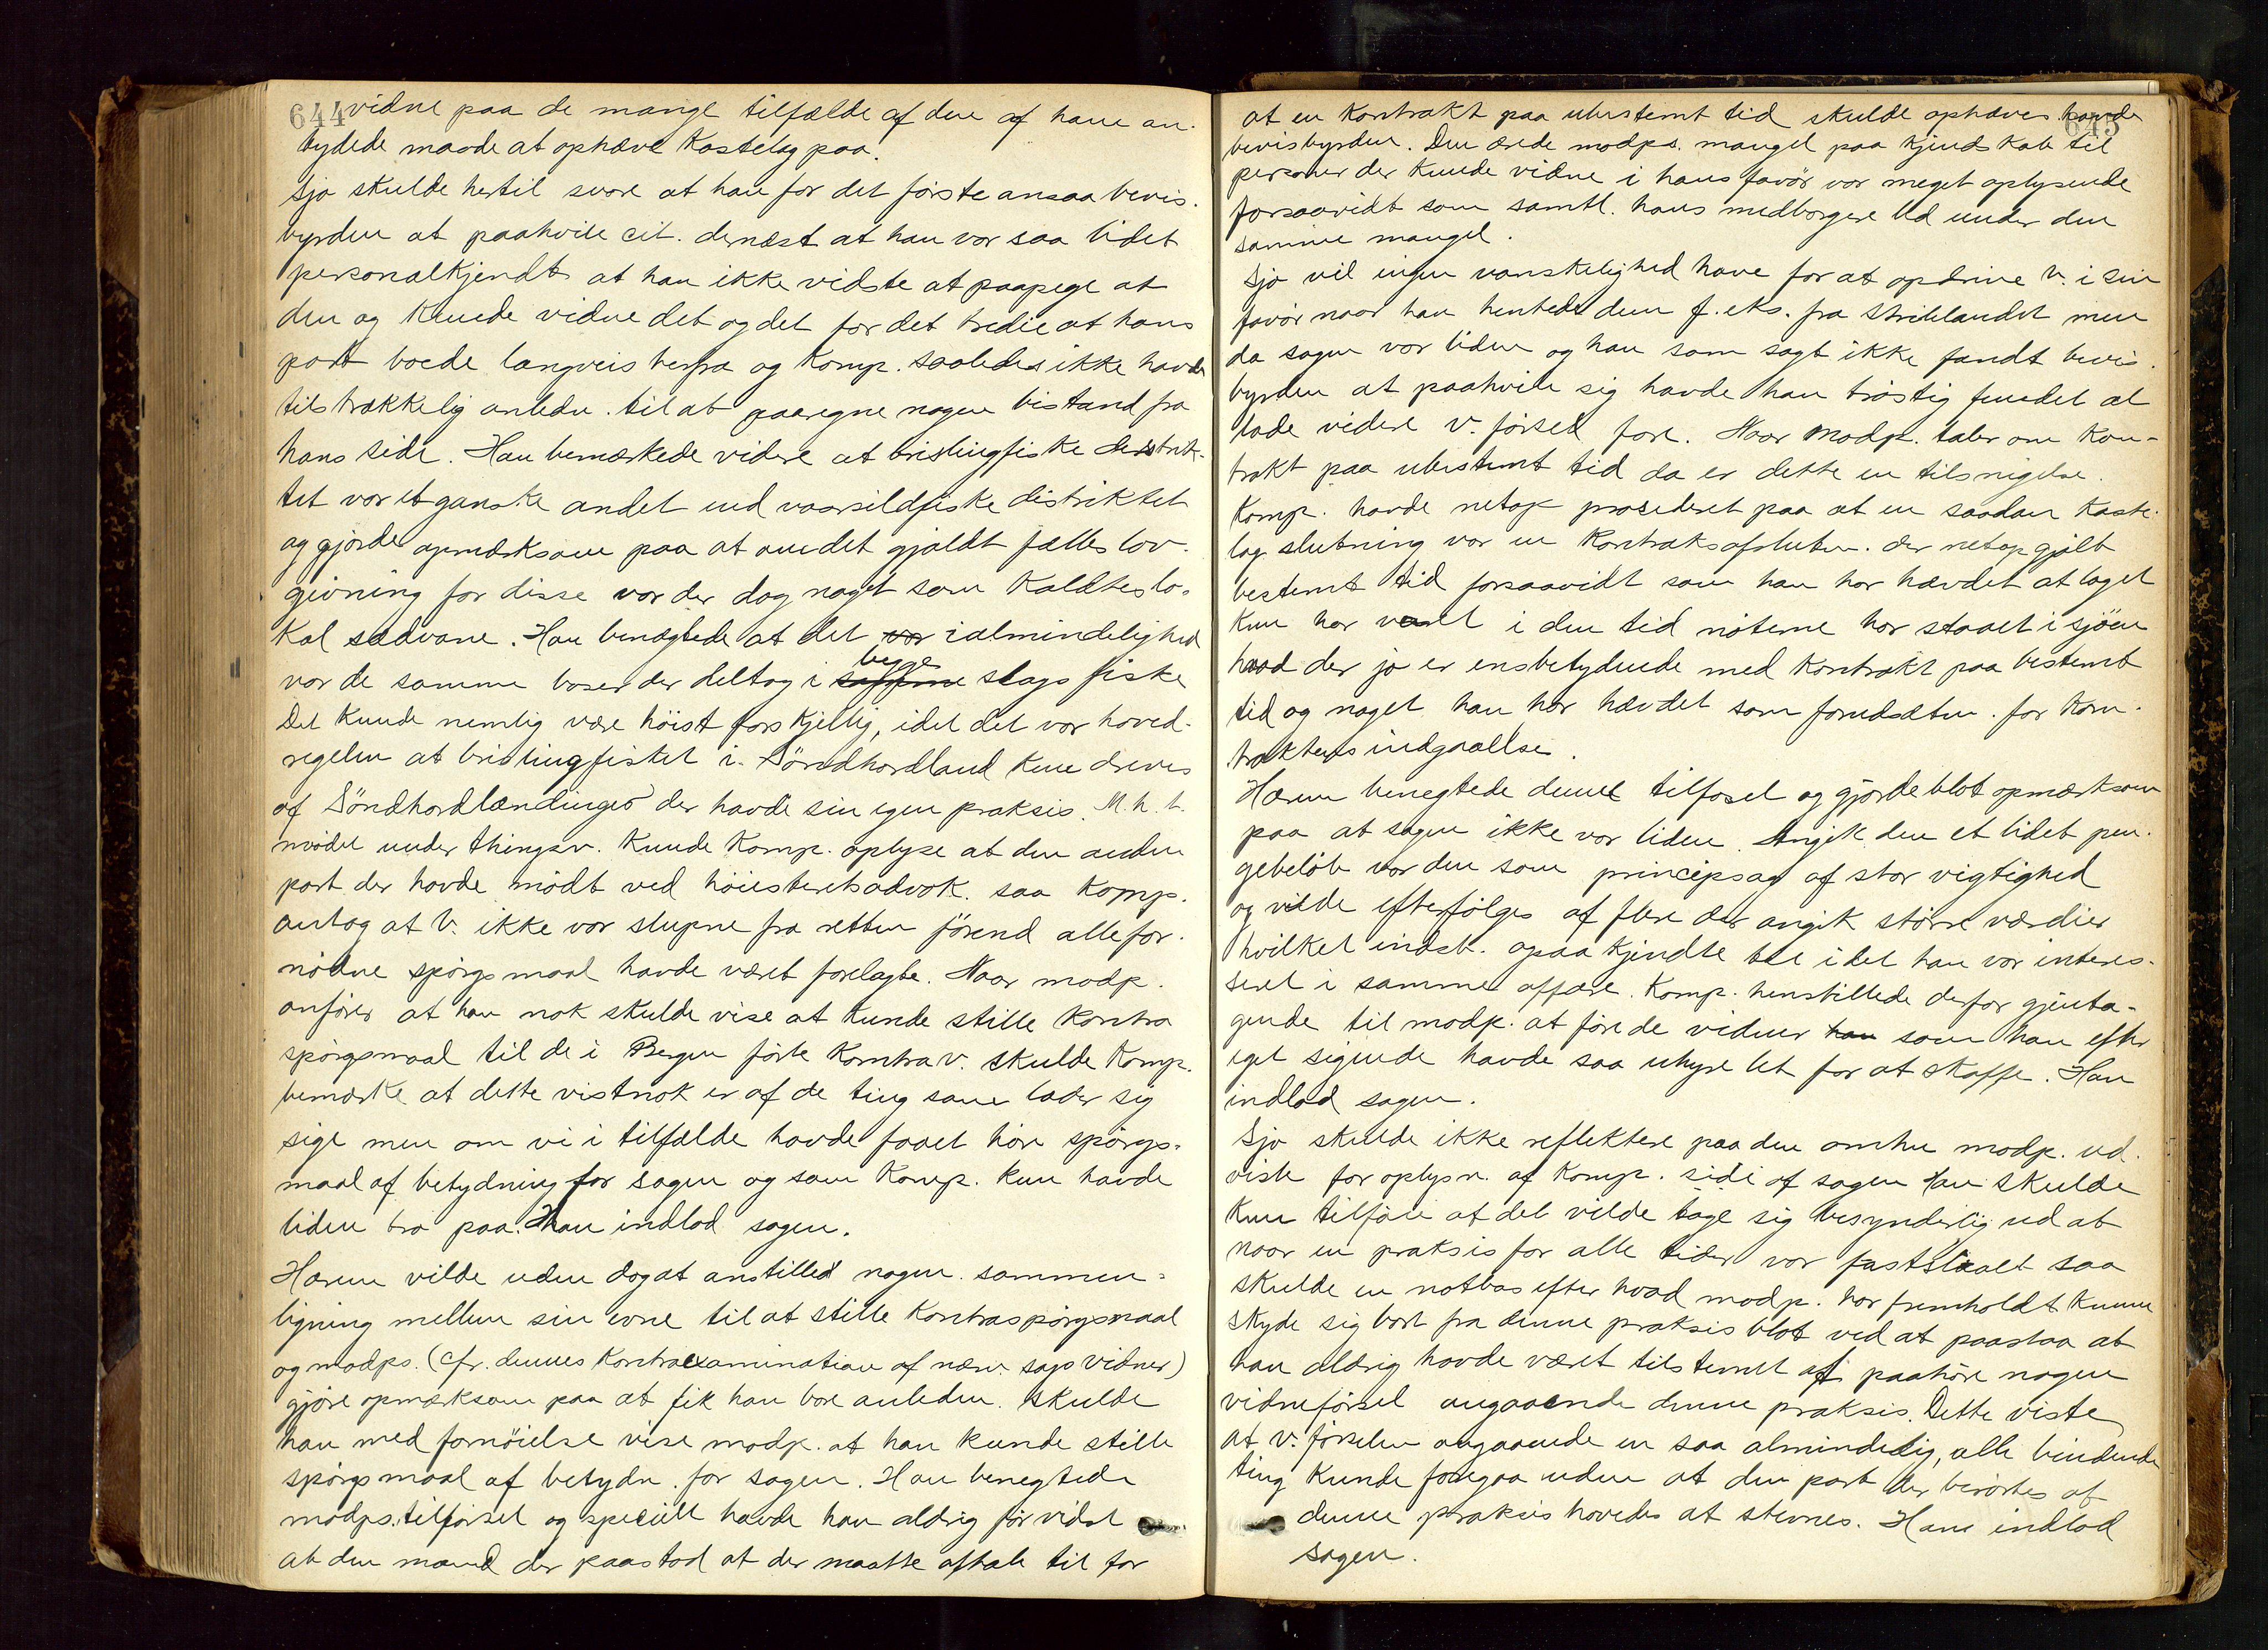 644 vidne paa de mange tilfælde af den af ham an-
tydede maade at ophæve kastelag paa.
Sjo skulde hertil svare at han for det förste ansaa bevis-
byrden at paahvile cit. dernæst at han var saa lidet
personalkjendt at han ikke vidste at paapege at
den og kunde vidne det og det for det tredie at hans
part boede langveis herfra og komp. saaledes ikke havde
tilstrækkelig anledn. til at paaregne nogen bistand fra
hans side. Han bemærkede videre at brislingfiske distrik-
tet var et ganske andet end vaarsildfiske distriktet
og gjorde opmerksom paa at om det gjaldt fælles lov-
givning for disse var der dog noget som kaldtes lo-
kal sædvane. Han benægtede at det var i almindelighed
var de samme baser der deltog i samme begge slags fiske
Det kunde nemlig være höist forskjellig, idet det var hoved-
regelen at brislingfisket i Söndhordland kun dreves
af Söndhordlændinger der havde sin egen praksis. M.h.t.
mödet under thingsv. kunde komp. oplyse at den anden
part der havde mödt ved höiesteretsadvok. saa komp.
antog at v. ikke var slupne fra retten förend alle for-
nödne spörgsmaal havde været forelagte. Naar modp.
anförer at han nok skulde vise at kunde stille kontra
spörgsmaal til de i Bergen förte kontrav. skulde komp.
bemærke at dette vistnok er af de ting som lader sig
sige men om vi i tilfælde havde faaet höre spörgs-
maal af betydning for sagen og som komp. kun havde
liden tro paa. Han indlod sagen.
Harem vilde uden dog at anstilled nogen sammen-
ligning mellem sin evne til at stille kontraspörgsmaal
og modps. (cfr. dennes kontraexamination af nærv. sags vidner)
gjöre opmærksom paa at fik han bare anledn. skulde
han med fornöielse vise modp. at han kunde stille
spörgsmaal af betydn. for sagen. Han benegtede
modps. tilförsel og specielt havde han aldrig för vidst
at den mand der paastod at der maatte aftale til for
645
at en kontrakt paa ubestemt tid skulde ophæves havde
bevisbyrden. Den ærede modps. mangel paa kjendskab til
personer der kunde vidne i hans favör var meget oplysende
forsaavidt som samtl. hans medborgere lid under den
samme mangel.
Sjo vil ingen vanskelighed have for at opdrive v. i sin
favör naar han hentede dem f. eks. fra strilelandet men
da sagen var liden og han som sagt ikke fandt bevis-
byrden at paahvile sig havde han tröstig fundet at
lade videre v. försel fare. Naar modp. taler om kon-
trakt paa ubestemt tid da er dette en tilsnigelse.
Komp. havde netop procederet paa at en saadan kaste-
lag slutning var en kontraksafslutn. der netop gjalt
bestemt tid forsaavidt som han har hævdet at laget
kun har varet i den tid nöterne har staaet i sjöen
hvad der jo er ensbetydende med kontrakt paa bestemt
tid og noget han har hævdet som forudsætn. for kon-
traktens indgaaelse.
Harem benegtede denne tilförsel og gjorde blot opmærksom
paa at sagen ikke var liden. Angik den et lidet pen-
gebelöb var den som principsag af stor vigtighed
og vilde efterfölges af flere der angik större værdier
hvilket indst. ogsaa kjendte til idet han var interes-
seret i samme affære. Komp. henstillede derfor gjenta-
gende til modp. at före de vidner han som han efter
eget sigende havde saa uhyre let for at skaffe. Han
indlod sagen.
Sjo skulde ikke reflektere paa den omhu modp. ud-
viste for oplysn. af komp. side af sagen Han skulde
kun tilföie at det vilde tage sig besynderlig ud at
naar en praksis for alle tider var fastslaaet saa
skulde en notbas efter hvad modp. har fremholdt kunne
skyde sig bort fra denne praksis blot ved at paastaa at
han aldrig havde været tilstevnt at paahöre nogen
vidneförsel angaaende denne praksis. Dette viste
at v. förselen angaaende en saa almindelig, alle bindende
ting kunde foregaa uden at den part der berörtes af
denne praksis havedes at stevnes. Han indlod
sagen.